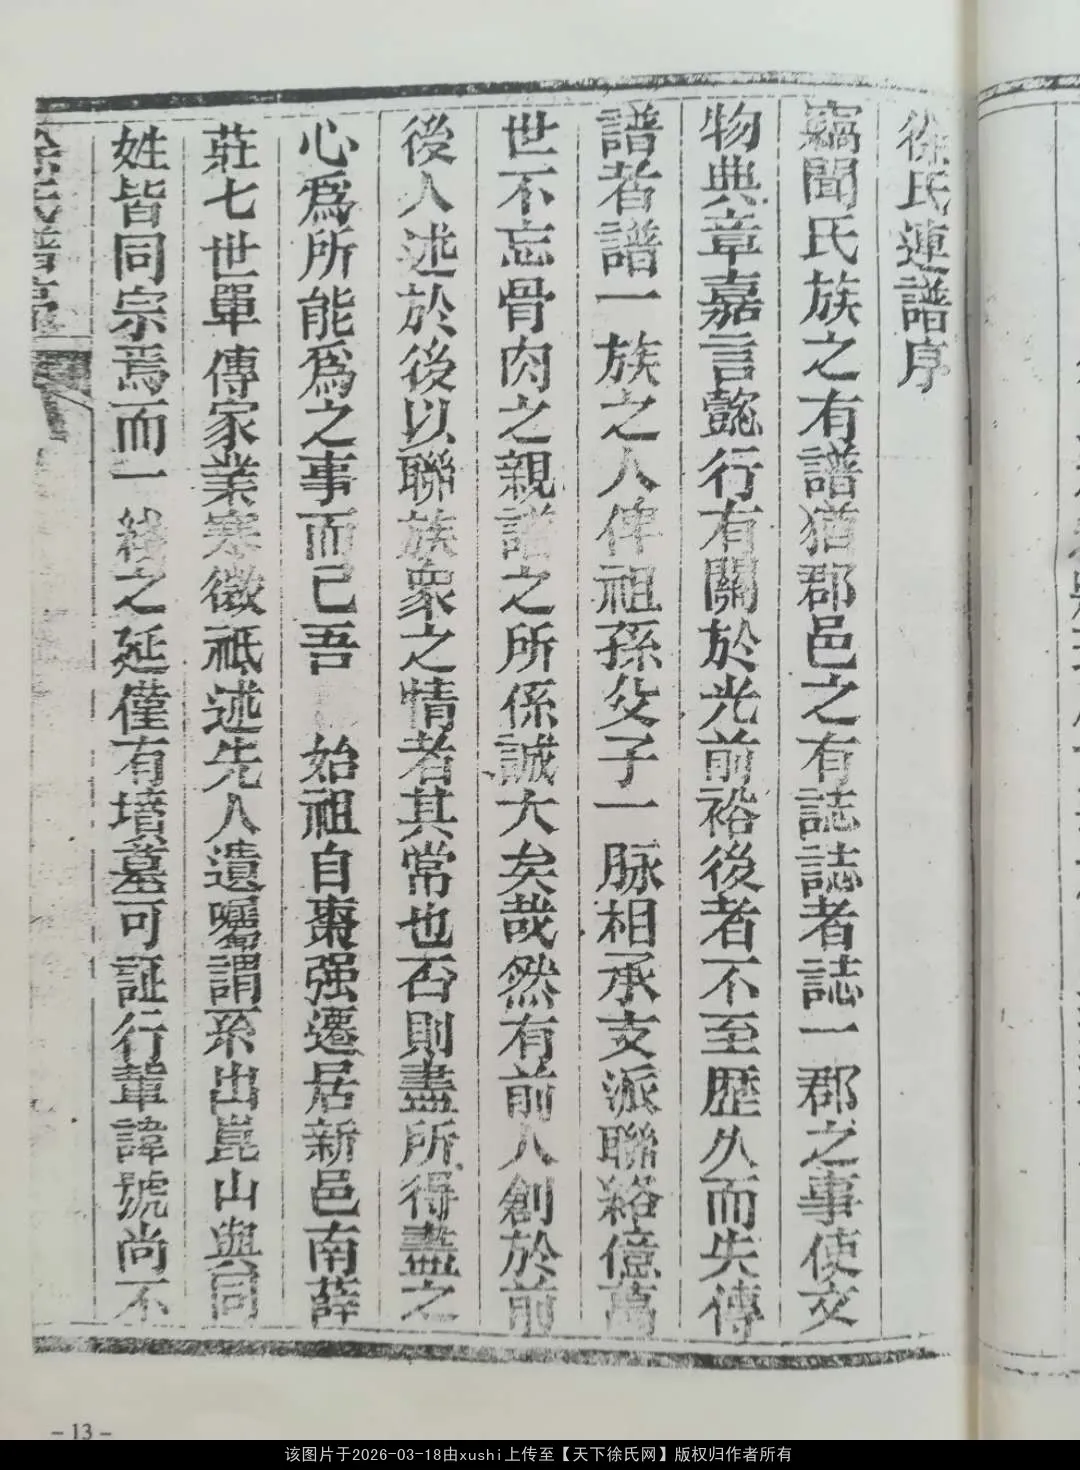 徐氏連譜序
竊聞氏族之有譜猶郡邑之有誌誌者誌一郡之事使文
物典章嘉言懿行有關於光前裕後者不至歷久而失傳
譜者譜一族之人俾祖孫父子一脉相承支派聯絡億萬
世不忘骨肉之親譜之所係誠大矣哉然有前人創於前
後人述於後以聯族衆之情者其常也否則盡所得盡之
心爲所能爲之事而已吾 始祖自棗强遷居新邑南薛
莊七世單傳家業寒微祇述先人遺囑謂系出崑山與同
姓皆同宗焉而一綫之延僅有墳墓可証行輩諱號尚不
徐氏譜序
- 13 -
该图片于2026-03-18由xushi上传至【天下徐氏网】版权归作者所有